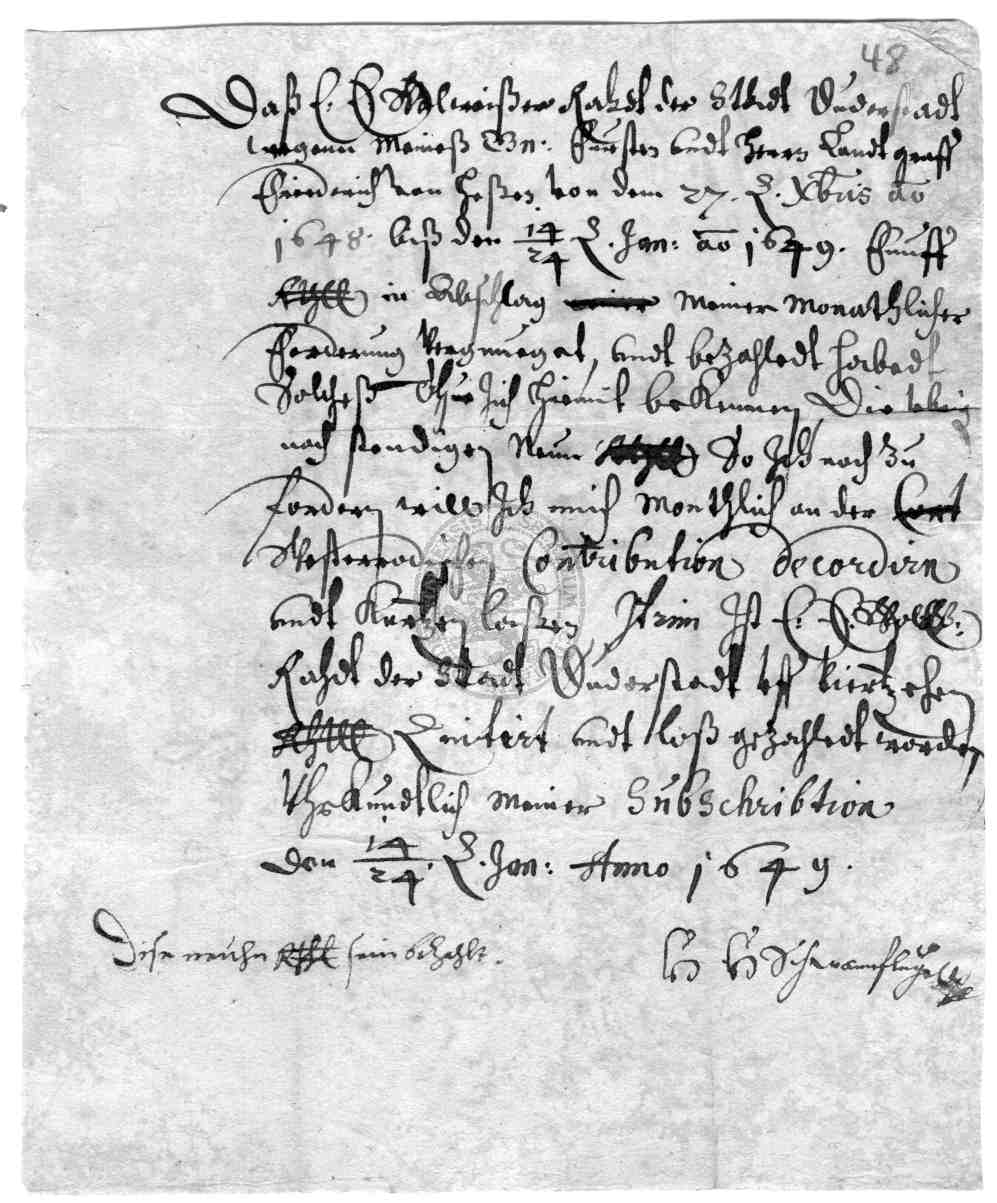 48
Daß E. E. Wolweißer Rahdt der Stadt Duderstadt
wegenn Meineß Gn: Fürsten undt Herrn Landt graff
Friederich von Heßen von dem 27. Xbris ao
1648. biß den 14/24 Jan: ao 1649. Funff
Rthll in Abschlag meiner Monathlicher
Forderung Vergnueget, undt bezahledt habedt
Solcheß Thue Ich hiemit bekennen, Die
nach stendigen Neun Rthll So Ich noch zu
fordern will Ich mich Monthlich an der Cont
Westerrodischen Contribution decordirn
undt Kurtzen laßen, Ist E. E. Wolw:
Rahdt der Stadt Duderstadt uff Viertzehen
Rthll Quitirt undt loß gezahledt worden
Uhrkundtlich Meiner Subschribtion
den 14/24 Jan: Anno 1649.
Dise neuhn Rthl sein bezahlt.
H H Schwannflügel